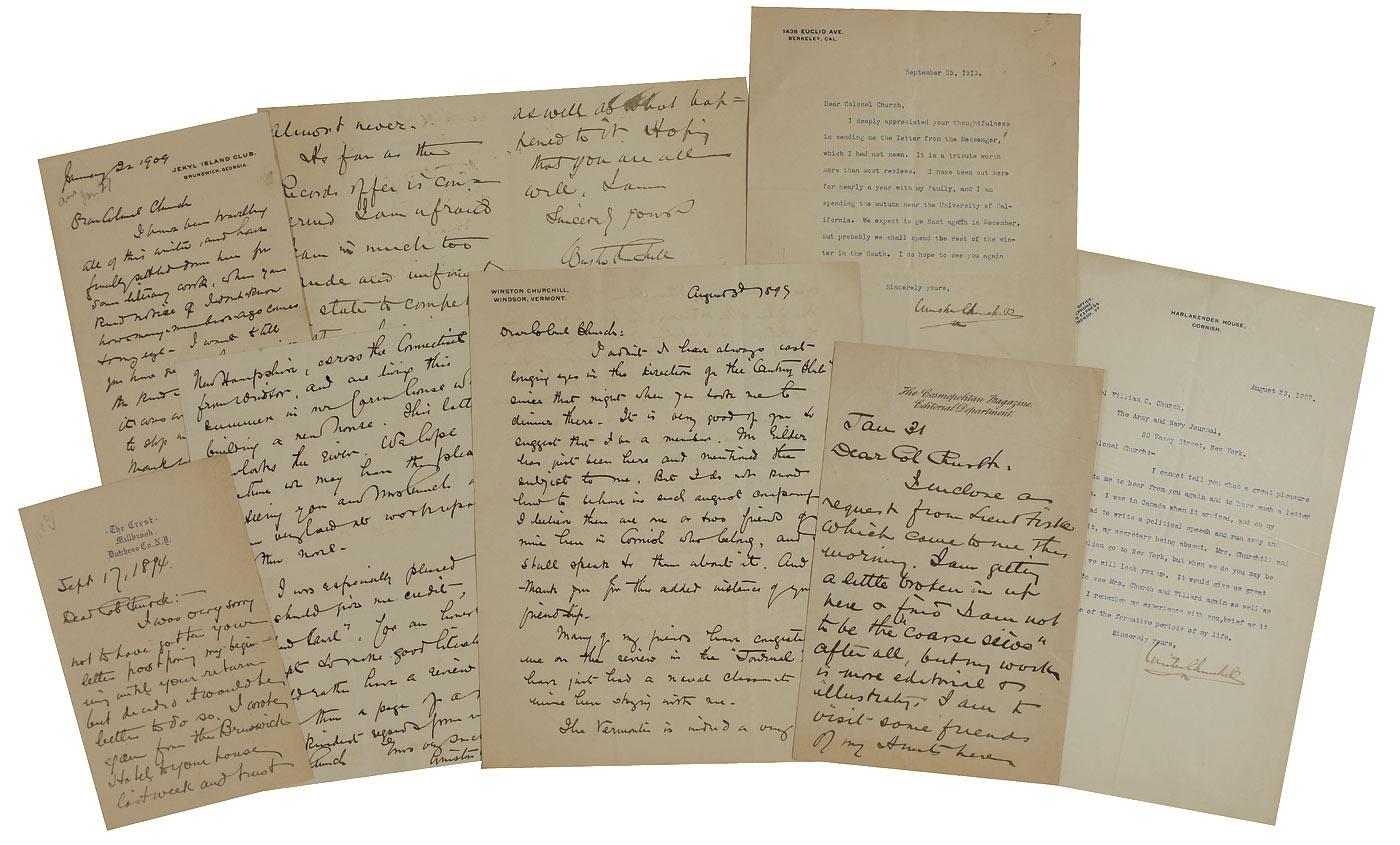 January 22 1909
JEKYL ISLAND CLUB.
BRUNSWICK, GEORGIA.
Dear Colonel Church
I have been travelling
all of this winter, and have
finally settled down here for
some literary work, when your
kind notice of
how many numbers ago comes
to my eye. I want to tell
you have
the kind
it was
to stop
Thank
almost never.
As far as the
records offer is con=
I am afraid
am in much too
crude and
state to compe
as well as what hap=
pened to it. Hoping
that you are all
well, I am
Sincerely yours
Winston Churchill
1436 EUCLID AVE.
BERKELEY, CAL.
September 25, 1913.
Dear Colonel Church,
I deeply appreciated your thoughtfulness
in sending me the letter from the Messenger,
which I had not seen. It is a tribute worth
more than most reviews. I have been out here
for nearly a year with my family, and I am
spending the autumn near the University of Cal-
ifornia. We expect to go East again in December,
but probably we shall spend the rest of the win-
ter in the South. I do hope to see you again
Sincerely yours,
Winston Churchill
New Hampshire, across the Connecticut
from Windsor, and are living this
summer in our farm house
building a new house. This
overlooks the river. We hope
time we may have the plea
seeing you and Mrs Church
I was especially pleased
should give me credit,
for an honest
to make good
rather have a review
than a page of a
kindest regards from
Church
Winston
WINSTON CHURCHILL,
WINDSOR, VERMONT.
August 3d 1899
Dear Colonel Church:
I admit I have always cast
longing eyes in the direction of the "Century Club"
since that night when you took me to
dinner there. It is very good of you to
suggest that I be a member. Mr Gilder
has just been here and mentioned the
subject to me. But I do not know
him to whom in such august company
I believe there are one or two friends of
mine here in Cornish who belong, and
shall speak to them about it. And
thank you for this added instance of your
friendship.
Many of my friends have congratu
me on the review in the "Journal.
have just had a naval classmate
mine here staying with me.
The Vermonter is indeed a very
The Cosmopolitan Magazine,
Editorial Department.
Jan 31
Dear Col Church:
I inclose a
request from Lieut Fiske
which came to me this
morning. I am getting
a little broken in up
here & find I am not
to be the "coarse sieve"
after all, but my work
is more editorial &
illustrating. I am to
visit some friends
of my Aunts here
HARLAKENDEN HOUSE,
CORNISH.
August 23, 1907.
William C. Church,
The Army and Navy Journal,
20 Vesey Street, New York.
Colonel Church:-
I cannot tell you what a great pleasure
to me to hear from you again and to have such a letter
I was in Canada when it arrived, and on my
had to write a political speech and run away and
it, my secretary being absent. Mrs. Churchill and
go to New York, but when we do you may be
we will look you up. It would give us great
to see Mrs. Church and Willard again as well as
I remember my experience with you, brief as it
of the formative periods of my life.
Sincerely yours,
Winston Churchill
-The Crest-
Millbrook
Dutchess Co. N.Y.
Sept 17, 1894.
Dear Col Church:-
I was very sorry
not to have gotten your
letter postponing my begin-
ing until your return
but decided it would be
better to do so. I wrote
again from the Brunswick
Hotel to your house
last week and trust